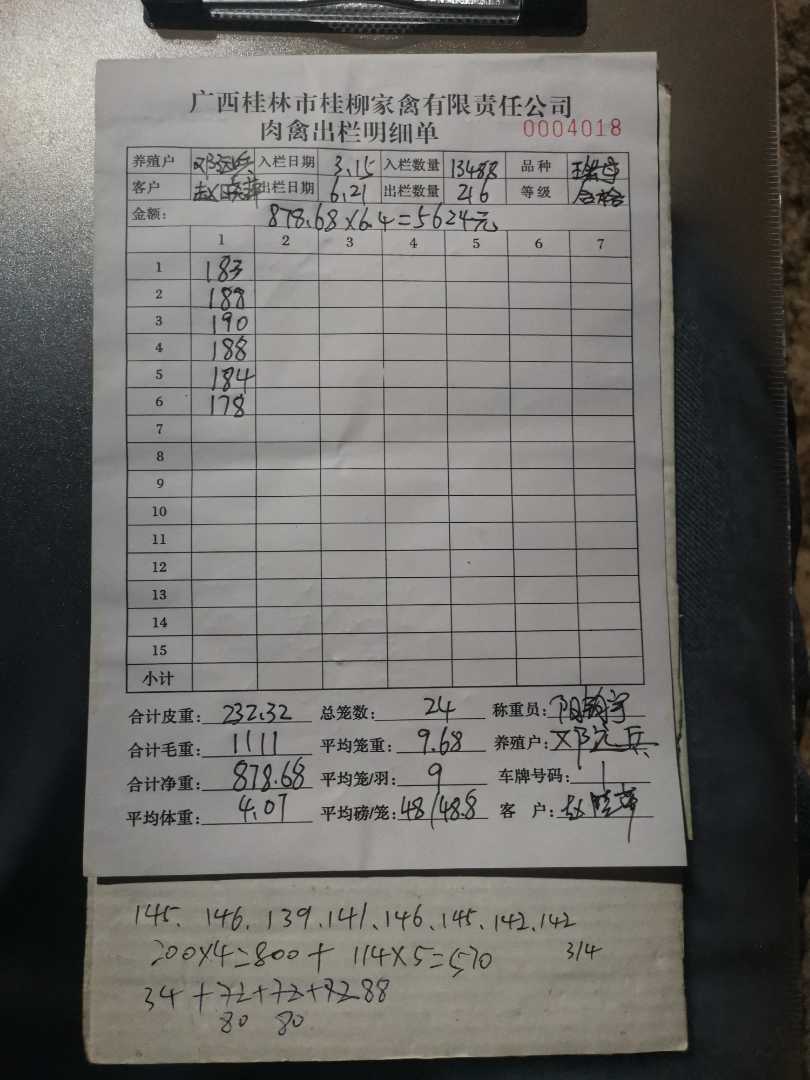 广西桂林市桂柳家禽有限责任公司
肉禽出栏明细单 0004018
养殖户 邓远兵 入栏日期 3.15 入栏数量 13488 品种
客户 赵晓萍 出栏日期 6.21 出栏数量 216 等级 合格
金额: 878.68×6.4=5624元
1 2 3 4 5 6 7
1 183
2 188
3 190
4 188
5 184
6 178
7
8
9
10
11
12
13
14
15
小计
合计皮重: 232.32 总笼数: 24 称重员:
合计毛重: 1111 平均笼重: 9.68 养殖户: 邓远兵
合计净重: 878.68 平均笼/羽: 9 车牌号码: 1
平均体重: 4.07 平均磅/笼: 48/48.8 客 户: 赵晓萍
145. 146. 139. 141. 146. 145. 142. 142
200×4=800+ 114×5=570 314
34+72+72+72 88
80 80